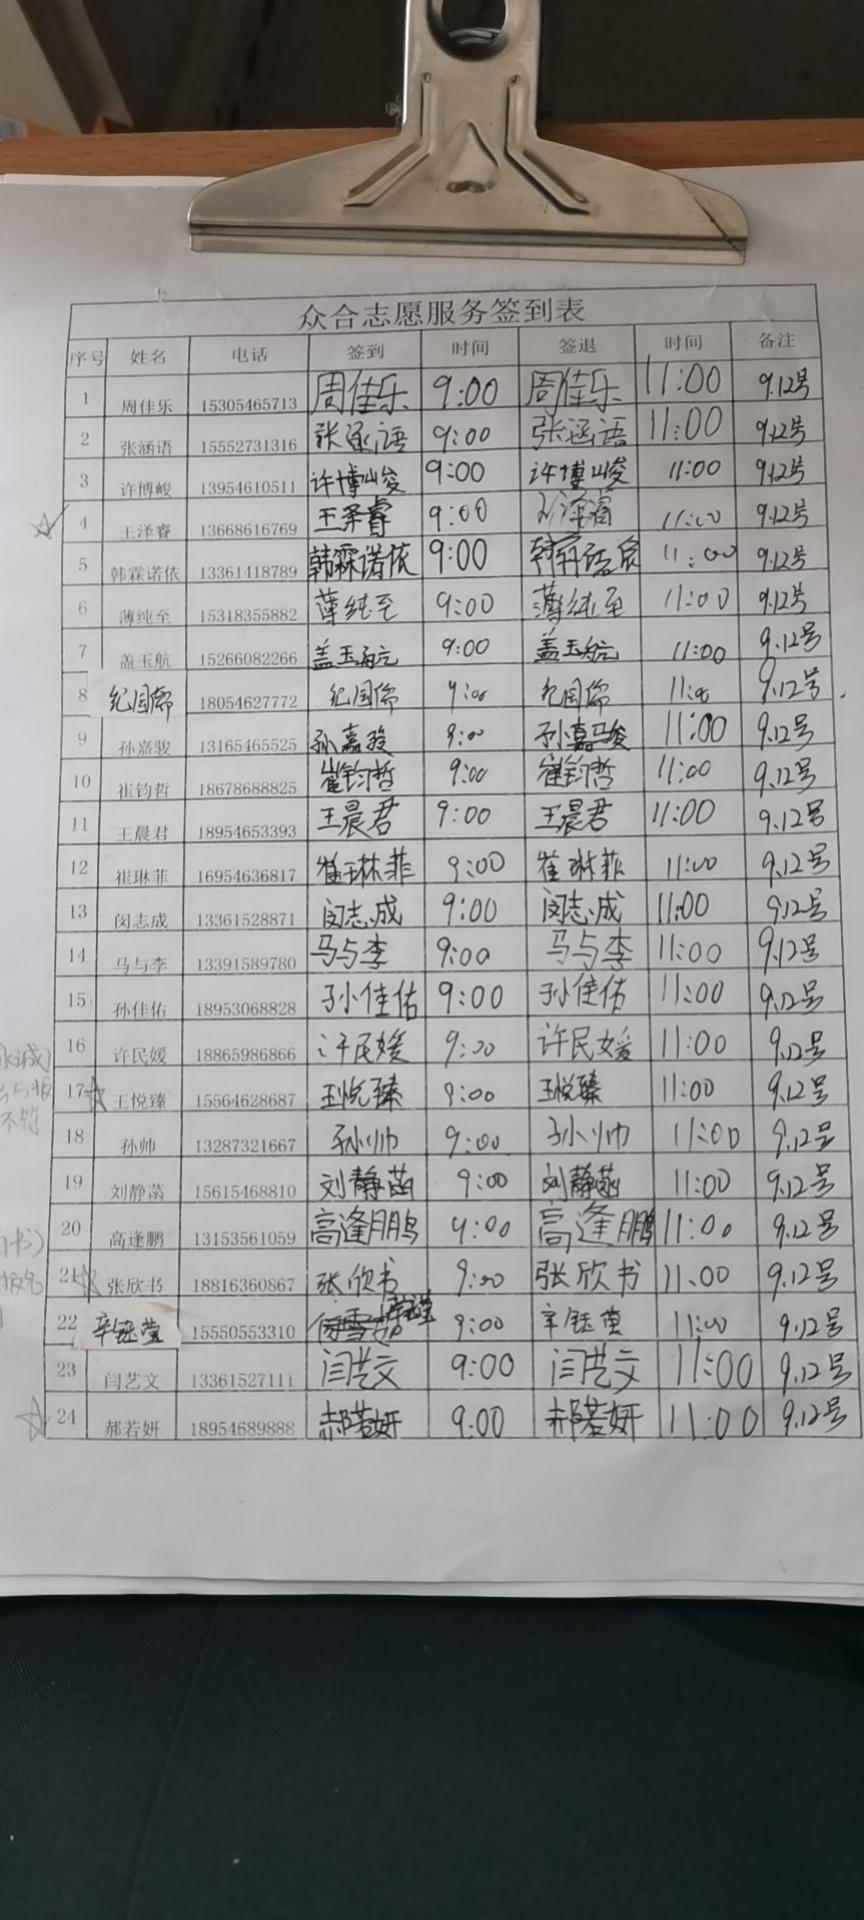 众合志愿服务签到表
序号 姓名 电话 签到 时间 签退 时间 备注
1 周佳乐 15305465713 周佳乐 9:00 周佳乐 11:00 9.12号
2 张涵语 15552731316 张涵语 9:00 张涵语 11:00 9.12号
3 许博峻 13954610511 许博峻 9:00 许博峻 11:00 9.12号
4 王泽睿 13668616769 王泽睿 9:00 11:00 9.12号
5 韩霖诺依 13361418789 韩霖诺依 9:00 11:00 9.12号
6 薄纯至 15318355882 薄纯至 9:00 薄纯至 11:00 9.12号
7 盖玉航 15266082266 盖玉航 9:00 盖玉航 11:00 9.12号
8 纪国儒 18054627772 纪国儒 9:00 纪国儒 11:00 9.12号
9 孙嘉骏 13165465525 孙嘉骏 9:00 孙嘉骏 11:00 9.12号
10 崔钧哲 18678688825 崔钧哲 9:00 崔钧哲 11:00 9.12号
11 王晨君 18954653393 王晨君 9:00 王晨君 11:00 9.12号
12 崔琳菲 16954636817 崔琳菲 9:00 崔琳菲 11:00 9.12号
13 闵志成 13361528871 闵志成 9:00 闵志成 11:00 9.12号
14 马与李 13391589780 马与李 9:00 马与李 11:00 9.12号
15 孙佳佑 18953068828 孙佳佑 9:00 孙佳佑 11:00 9.12号
16 许民媛 18865986866 许民媛 9:00 许民媛 11:00 9.12号
17 王悦臻 15564628687 王悦臻 9:00 王悦臻 11:00 9.12号
18 孙帅 13287321667 孙帅 9:00 孙帅 11:00 9.12号
19 刘静菡 15615468810 刘静菡 9:00 刘静菡 11:00 9.12号
20 高逢鹏 13153561059 高逢鹏 9:00 高逢鹏 11:00 9.12号
21 张欣书 18816360867 张欣书 9:00 张欣书 11:00 9.12号
22 辛钰莹 15550553310 9:00 辛钰莹 11:00 9.12号
23 闫艺文 13361527111 闫艺文 9:00 闫艺文 11:00 9.12号
24 郝若妍 18954689888 郝若妍 9:00 郝若妍 11:00 9.12号